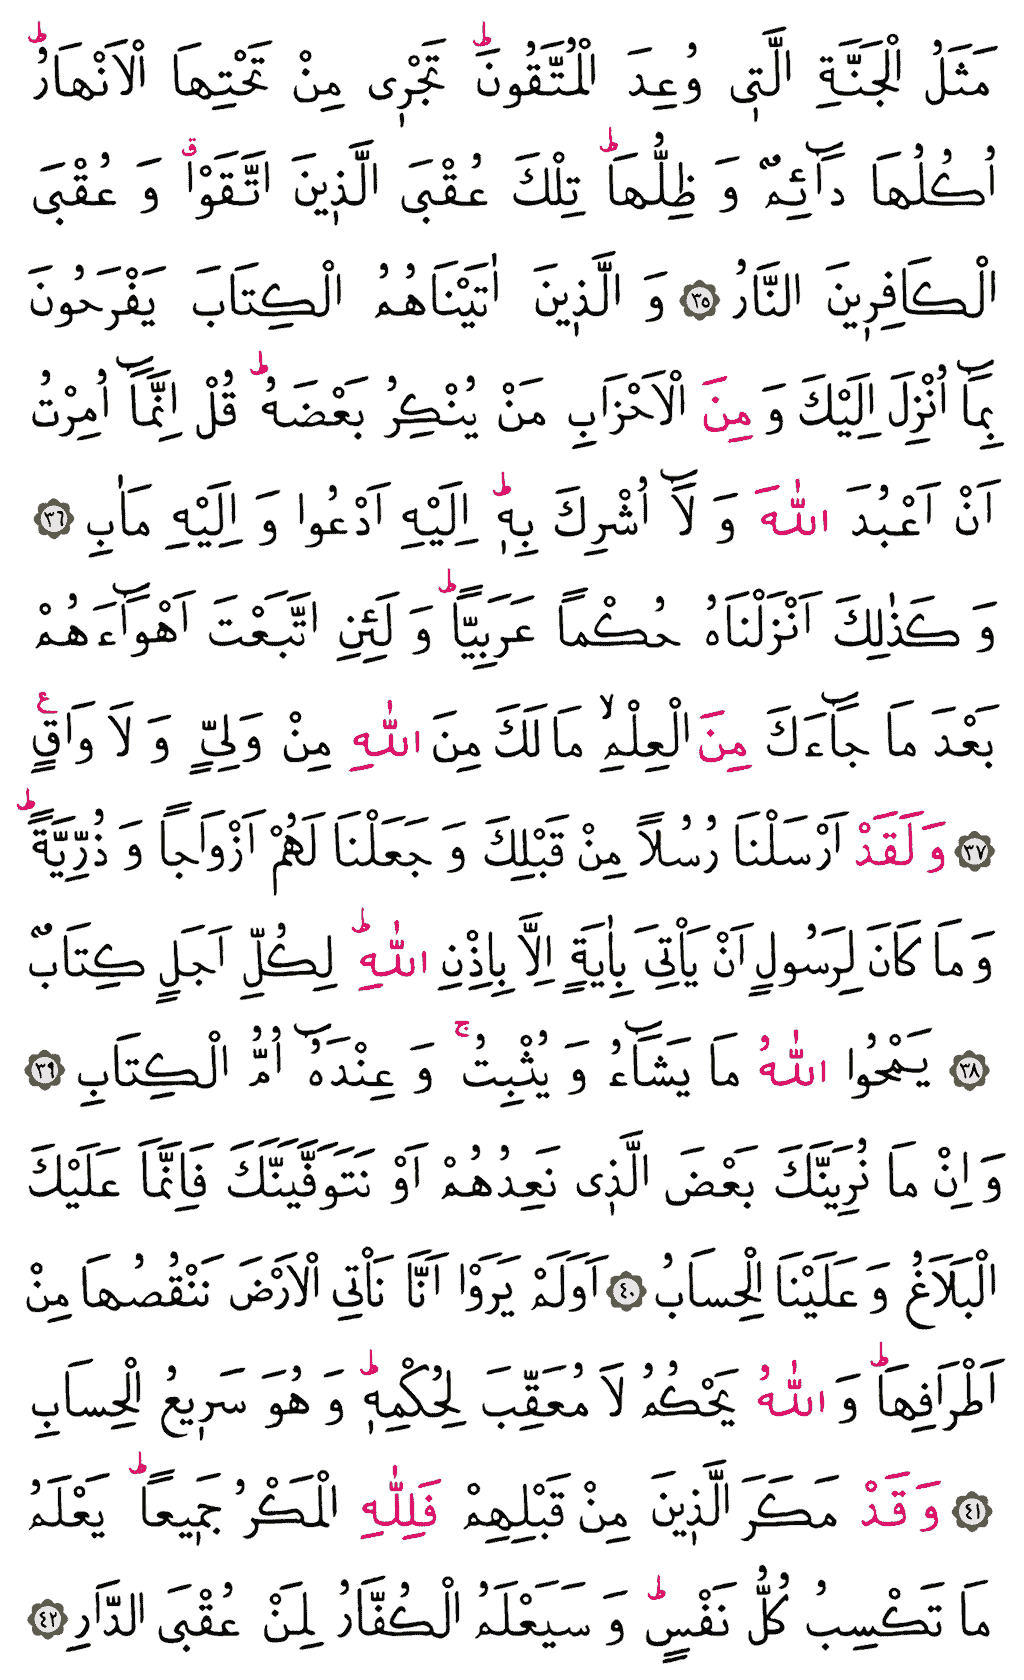 مَثَلُ الْجَنَّةِ الَّتٖي وُعِدَ الْمُتَّقُونَؕ تَجْرٖي مِنْ تَحْتِهَا الْاَنْهَارُؕ
اُكُلُهَا دَٓائِمٌ وَ ظِلُّهَاؕ تِلْكَ عُقْبَى الَّذٖينَ اتَّقَوْاࣗ وَ عُقْبَى
الْكَافِرٖينَ النَّارُ ﴿٣٥﴾ وَ الَّذٖينَ اٰتَيْنَاهُمُ الْكِتَابَ يَفْرَحُونَ
بِمَٓا اُنْزِلَ اِلَيْكَ وَ مِنَ الْاَحْزَابِ مَنْ يُنْكِرُ بَعْضَهُؕ قُلْ اِنَّمَٓا اُمِرْتُ
اَنْ اَعْبُدَ اللّٰهَ وَ لَٓا اُشْرِكَ بِهٖؕ اِلَيْهِ اَدْعُوا وَ اِلَيْهِ مَاٰبِ ﴿٣٦﴾
وَ كَذٰلِكَ اَنْزَلْنَاهُ حُكْماً عَرَبِيّاًؕ وَ لَئِنِ اتَّبَعْتَ اَهْوَٓاءَهُمْ
بَعْدَ مَا جَٓاءَكَ مِنَ الْعِلْمِۙ مَا لَكَ مِنَ اللّٰهِ مِنْ وَلِيٍّ وَ لَا وَاقٍࣖ
﴿٣٧﴾ وَ لَقَدْ اَرْسَلْنَا رُسُلاً مِنْ قَبْلِكَ وَ جَعَلْنَا لَهُمْ اَزْوَاجاً وَ ذُرِّيَّةًؕ
وَ مَا كَانَ لِرَسُولٍ اَنْ يَاْتِيَ بِاٰيَةٍ اِلَّا بِاِذْنِ اللّٰهِؕ لِكُلِّ اَجَلٍ كِتَابٌ
﴿٣٨﴾ يَمْحُوا اللّٰهُ مَا يَشَٓاءُ وَ يُثْبِتُۚ وَ عِنْدَهُٓ اُمُّ الْكِتَابِ ﴿٣٩﴾
وَ اِنْ مَا نُرِيَنَّكَ بَعْضَ الَّذٖي نَعِدُهُمْ اَوْ نَتَوَفَّيَنَّكَ فَاِنَّمَا عَلَيْكَ
الْبَلَاغُ وَ عَلَيْنَا الْحِسَابُ ﴿٤٠﴾ اَوَلَمْ يَرَوْا اَنَّا نَاْتِي الْاَرْضَ نَنْقُصُهَا مِنْ
اَطْرَافِهَاؕ وَ اللّٰهُ يَحْكُمُ لَا مُعَقِّبَ لِحُكْمِهٖؕ وَ هُوَ سَرٖيعُ الْحِسَابِ
﴿٤١﴾ وَ قَدْ مَكَرَ الَّذٖينَ مِنْ قَبْلِهِمْ فَلِلّٰهِ الْمَكْرُ جَمٖيعاًؕ يَعْلَمُ
مَا تَكْسِبُ كُلُّ نَفْسٍؕ وَ سَيَعْلَمُ الْكُفَّارُ لِمَنْ عُقْبَى الدَّارِ ﴿٤٢﴾